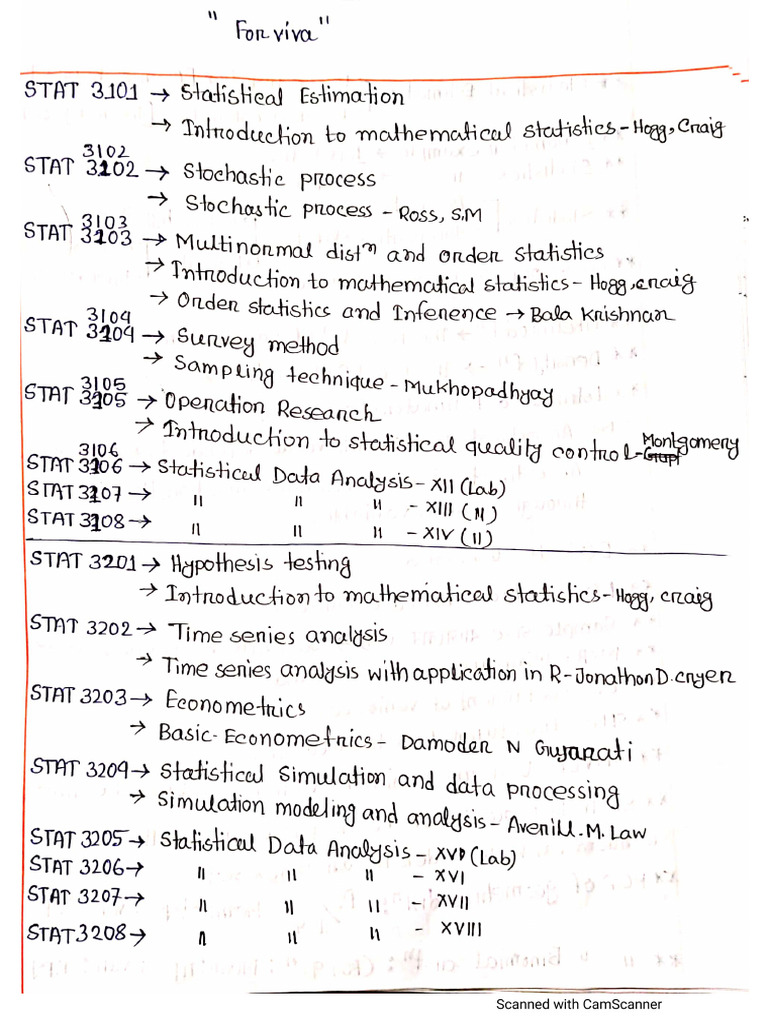 " For viva"
STAT 3101 → Statistical Estimation
→ Introduction to mathematical statistics - Hogg, Craig
3102
STAT 3202 → Stochastic process
→ Stochastic process - Ross, S.M
3103
STAT 3203 → Multinormal distⁿ and order statistics
→ Introduction to mathematical statistics - Hogg, craig
→ Order statistics and Inference → Bala Krishnan
3104
STAT 3204 → Survey method
→ Sampling technique - Mukhopadhyay
3105
STAT 3205 → Operation Research
→ Introduction to statistical quality control - Montgomery
3106
STAT 3206 → Statistical Data Analysis - XII (Lab)
STAT 3207 → " " " - XIII (")
STAT 3208 → " " " - XIV (")
STAT 3201 → Hypothesis testing
→ Introduction to mathematical statistics - Hogg, craig
STAT 3202 → Time series analysis
→ Time series analysis with application in R - Jonathon D. cryer
STAT 3203 → Econometrics
→ Basic-Econometrics - Damoder N Gujarati
STAT 3204 → Statistical Simulation and data processing
→ Simulation modeling and analysis - Averill. M. Law
STAT 3205 → Statistical Data Analysis - (Lab)
STAT 3206 → " " " - XVI
STAT 3207 → " " " - XVII
STAT 3208 → " " " - XVIII
Scanned with CamScanner